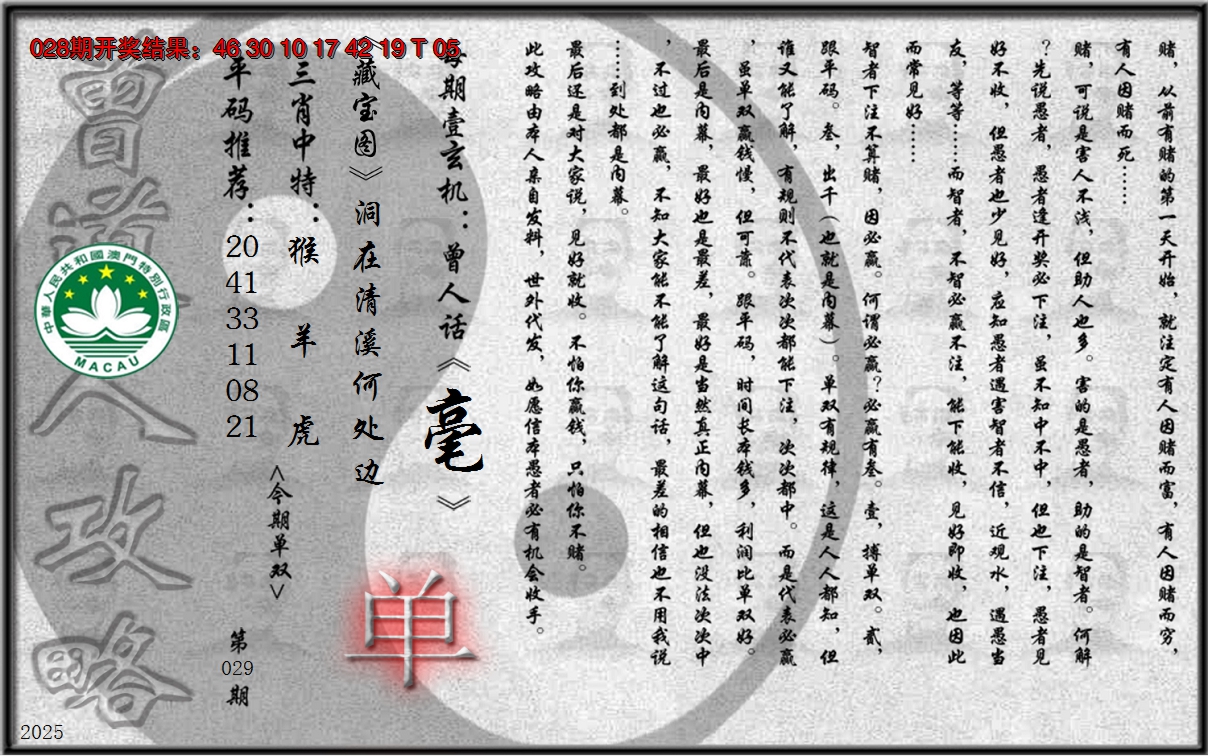 028期开奖结果：46 30 10 17 42 19 T 05
赌，从前有赌的第一天开始，就注定有人因赌而富，有人因赌而穷，
有人因赌而死……
赌，可说是害人不浅，但助人也多。害的是愚者，助的是智者。何解
？先说愚者，愚者逢开奖必下注，虽不知中不中，但也下注，愚者见
好不收，但愚者也少见好，应知愚者遇害智者不信，近观水，遇愚当
友，等等……而智者，不智必赢不注，能下能收，见好即收，也因此
而常见好……
智者下注不算赌，因必赢。何谓必赢？必赢有叁。壹，搏单双。贰，
跟平码。叁，出千（也就是内幕）。单双有规律，这是人人都知，但
谁又能了解，有规则不代表次次都能下注，次次都中。而是代表必赢
，虽单双赢钱慢，但可靠。跟平码，时间长本钱多，利润比单双好。
最后是内幕，最好也是最差，最好是当然真正内幕，但也没法次次中
，不过也必赢，不知大家能不能了解这句话，最差的相信也不用我说
……到处都是内幕。
最后还是对大家说，见好就收。不怕你赢钱，只怕你不赌。
此攻略由本人亲自发料，世外代发，如愿信本愚者必有机会收手。
每期壹玄机：曾人话《毫》
《藏宝图》洞在清溪何处边
单
三肖中特：猴 羊 虎
<今期单双>
平码推荐：20 41 33 11 08 21
第029期
曾道人攻略
中華人民共和國澳門特別行政區
MACAU
2025